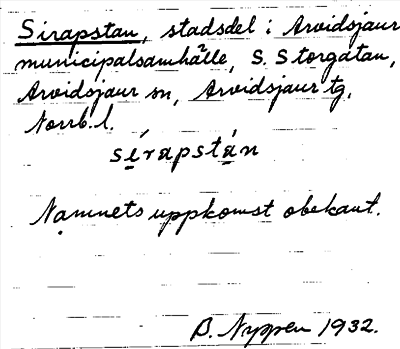 Sirapstan, stadsdel i Arvidsjaur
municipalsamhälle, S. Storgatan,
Arvidsjaur sn, Arvidsjaur tg.
Norrb. l.
sı̣́rapstạ́n
Namnets uppkomst obekant.
B. Nyppen 1932.